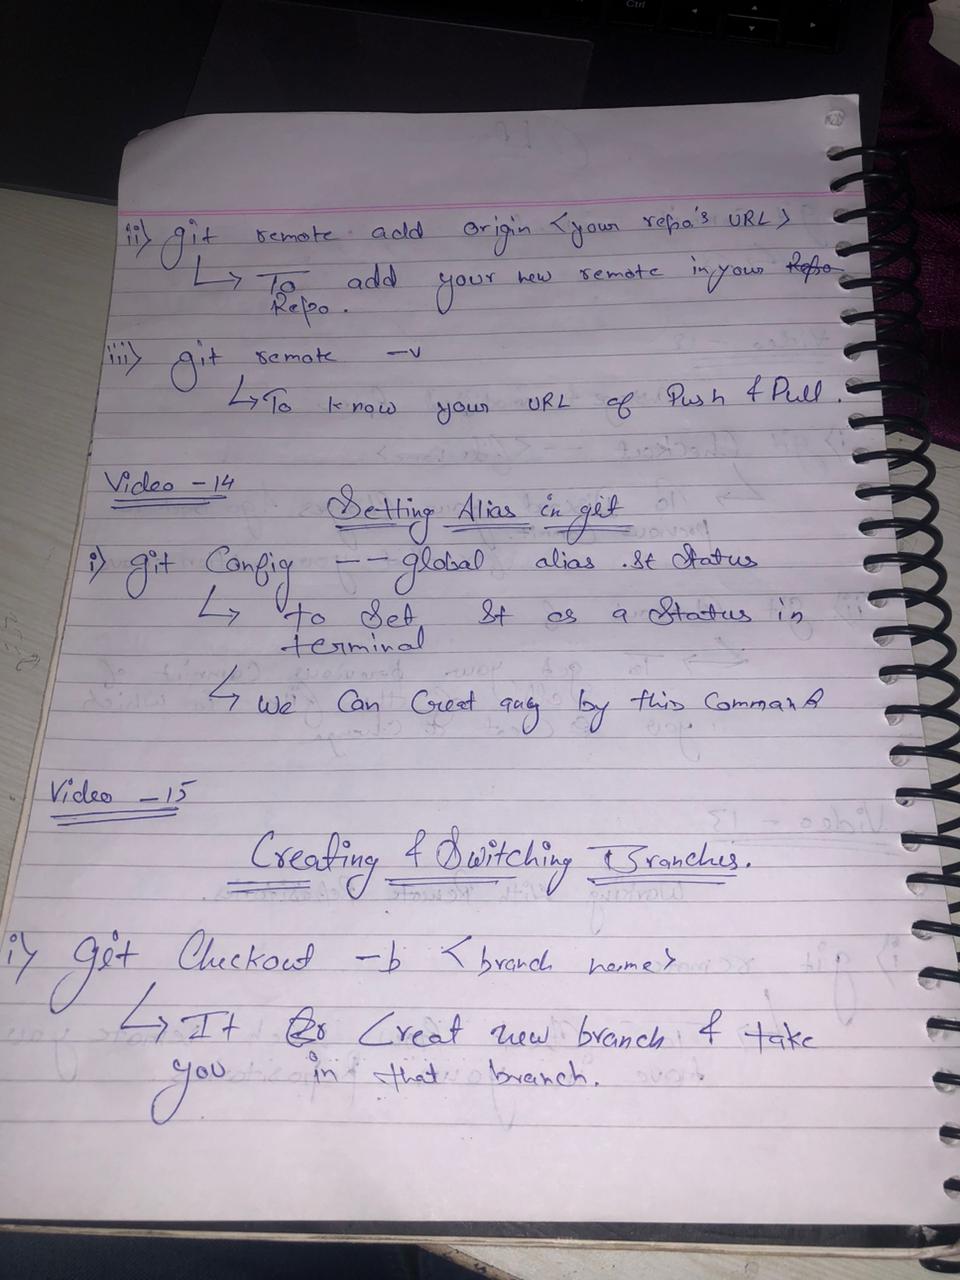 ii) git remote add origin <your repo's URL>
↳ To add your new remote in your Repo
Repo.
iii) git remote -v
↳ To know your URL of Push & Pull.
Video - 14
Setting Alias in git
i) git Config -- global alias .st Status
↳ To Set St as a Status in
terminal
↳ We Can Creat any by this Command
Video - 15
Creating & Switching Branches.
i) git Checkout -b <branch name>
↳ It Creat new branch & take
you in that branch.